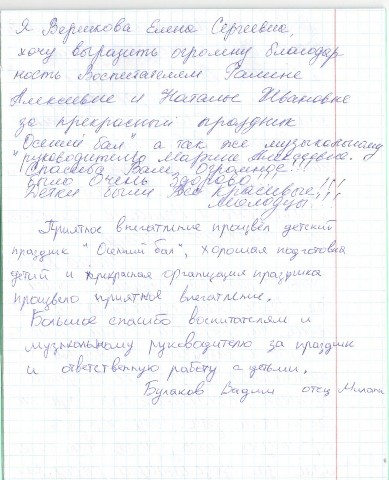 Я Верижкова Елена Сергеевна,
хочу выразить огромну благодар
ность Воспитателям Галине
Алексеевне и Наталье Ивановне
за прекрасный праздник
"Осений бал" а так же музыкальному
руководителю Марине
Спасиба Вам огромное!!!
Было очень здорово,
Детки были Все красивые!!!
Молодцы!!!
Приятное впечатление произвёл детский
праздник "Осенний бал", хорошая подготовка
детей и прекрасная организация праздника
произвело приятное впечатление.
Большое спасибо воспитателям и
музыкальному руководителю за праздник
и ответственную работу с детьми.
Булаков Вадим отец Миланы